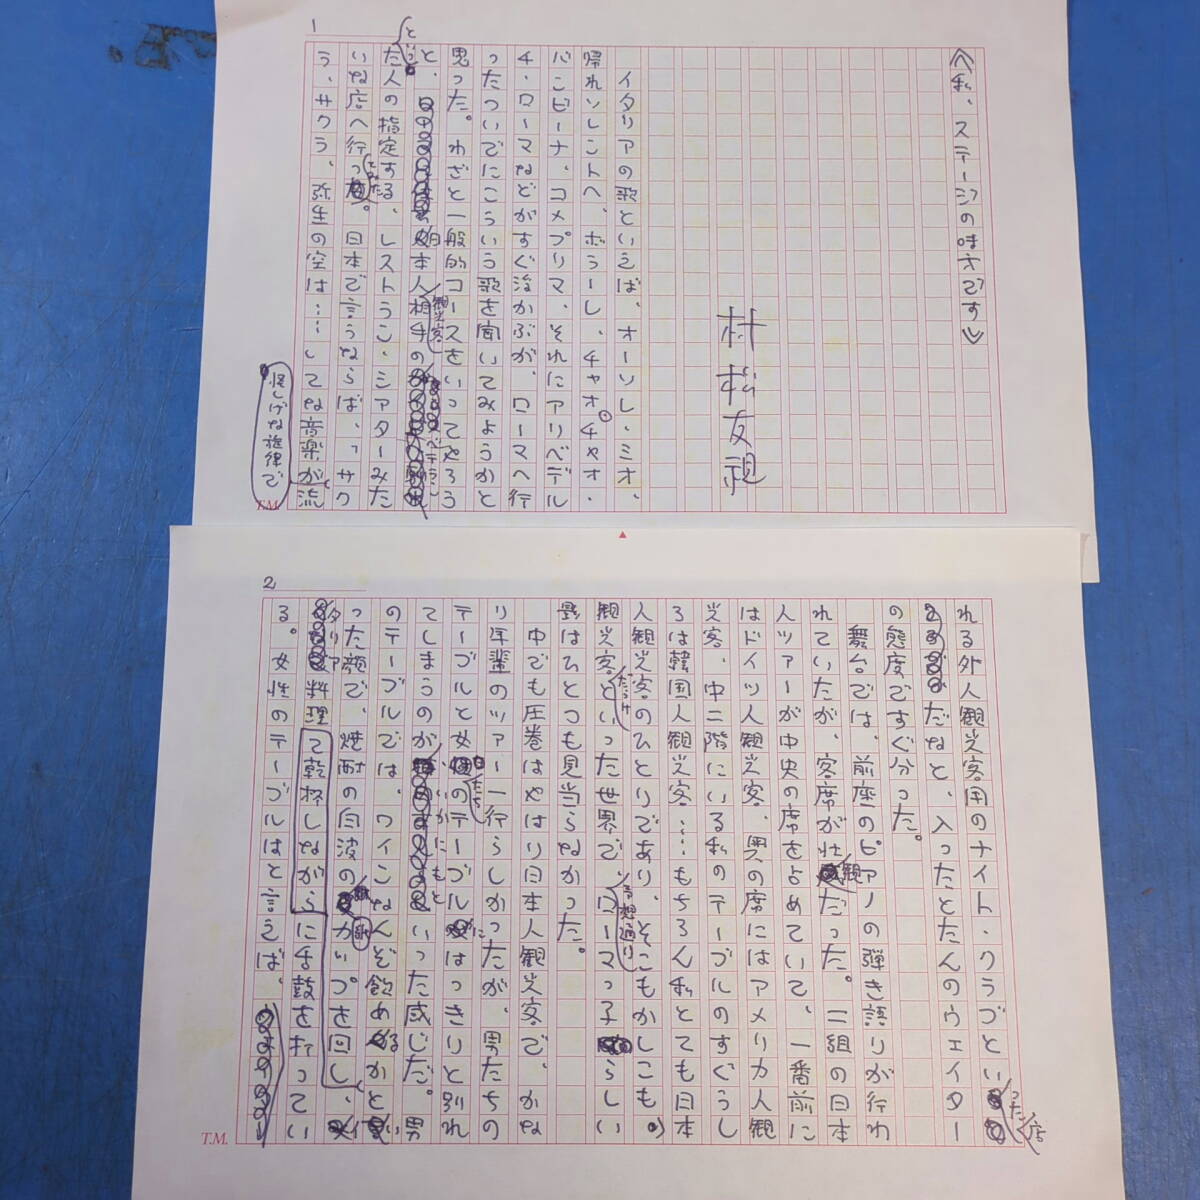 1
《私、ステージの味方です》
村松友視
イタリアの歌といえば、オーソレ・ミオ、
帰れソレントへ、ボラーレ、チャオ・チャオ・
バンビーナ、コメプリマ、それにアリベデル
チ・ローマなどがすぐ浮かぶが、ローマへ行
ったついでにこういう歌を聞いてみようかと
思った。わざと一般的コースをいってやろう
と、日本人観光客相手のベテラン
といった人の指定する、レストラン・シアターみた
いな店へ行ったとたん。日本で言うならば、〝サク
ラ、サクラ、弥生の空は……〟てな音楽が怪しげな旋律で流
T.M.
2
れる外人観光客用のナイト・クラブといった店
だなと、入ったとたんのウェイター
の態度ですぐ分った。
舞台では、前座のピアノの弾き語りが行わ
れていたが、客席が壮観だった。二組の日本
人ツアーが中央の席を占めていて、一番前に
はドイツ人観光客、奥の席にはアメリカ人観
光客、中二階にいる私のテーブルのすぐうし
ろは韓国人観光客……もちろん私とても日本
人観光客のひとりであり、そこもかしこも、
観光客だらけといった世界で、予想通りローマっ子らしい
影はひとつも見当らなかった。
中でも圧巻はやはり日本人観光客で、かな
り年輩のツアー一行らしかったが、男たちの
テーブルと女たちのテーブルにはっきりと別れ
てしまうのが、いかにもといった感じだ。男
のテーブルでは、ワインなんぞ飲めるかとい
った顔で、焼酎の白波のカップを回し、イ
タリア料理に舌鼓を打ってい
て乾杯しながら
る。女性のテーブルはと言えば、
T.M.